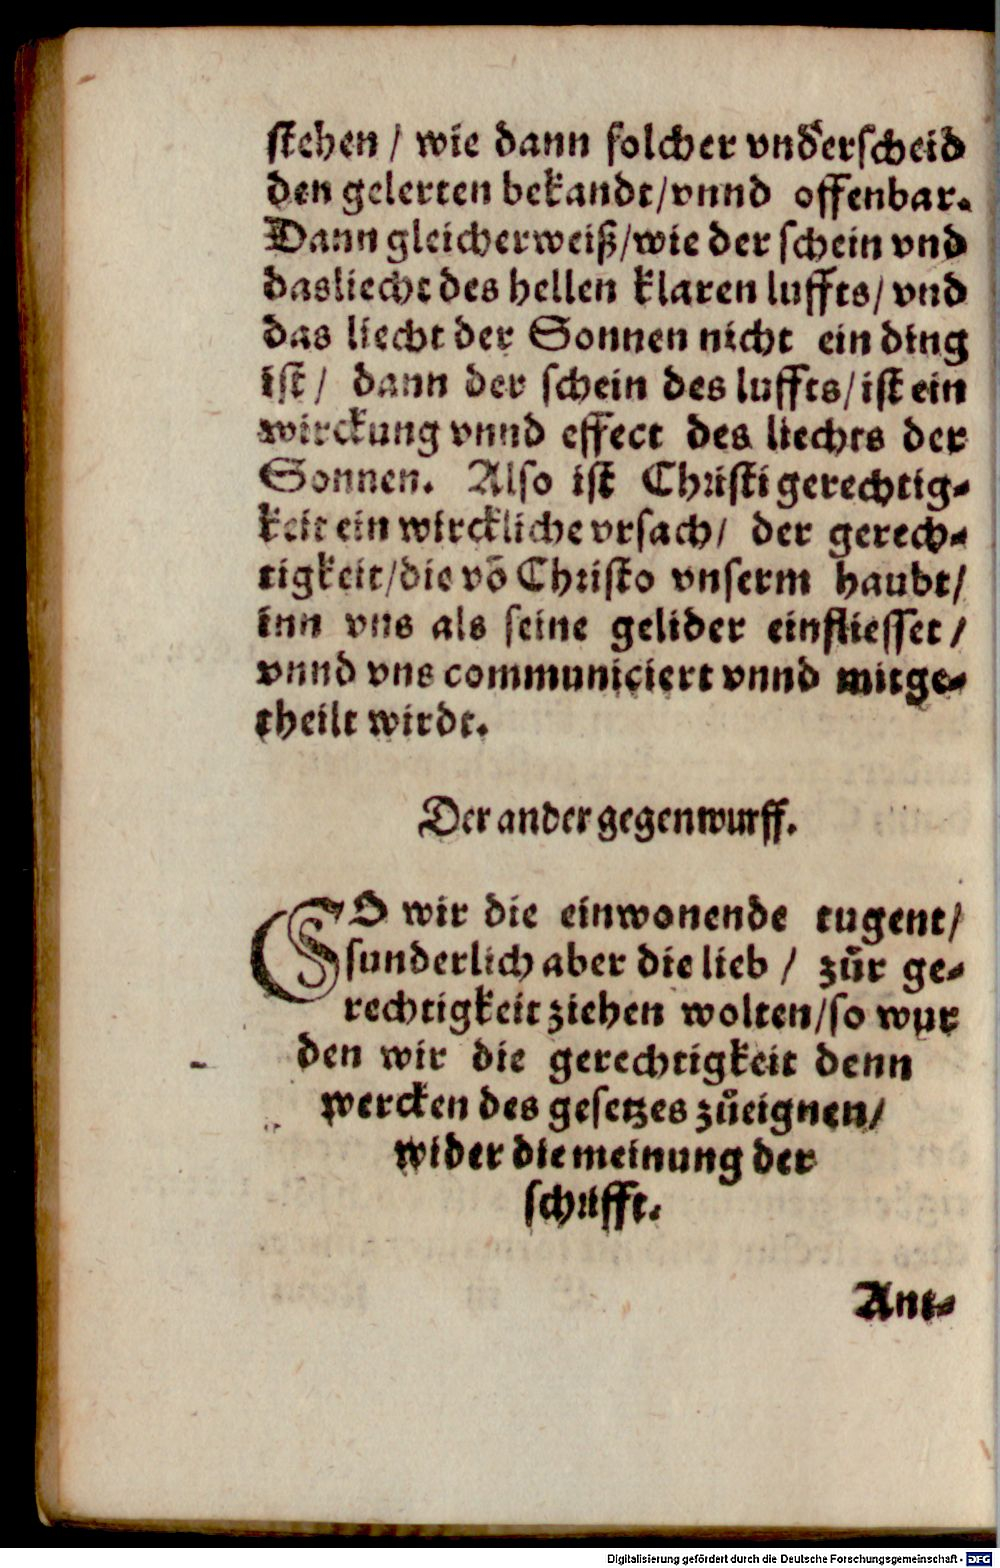 stehen / wie dann solcher vnderscheid
den gelerten bekandt/vnnd offenbar.
Dann gleicherweiß/wie der schein vnd
das liecht des hellen klaren luffts/ vnd
das liecht der Sonnen nicht ein ding
ist / dann der schein des luffts/ist ein
wirckung vnnd effect des liechts der
Sonnen. Also ist Christi gerechtig-
keit ein wirckliche vrsach/ der gerech-
tigkeit/die võ Christo vnserm haubt/
inn vns als seine gelider einfliesset /
vnnd vns communiciert vnnd mitge-
theilt wirdt.
Der ander gegenwurff.
SO wir die einwonende tugent/
sunderlich aber die lieb / zůr ge-
rechtigkeit ziehen wolten/so wur
den wir die gerechtigkeit denn
wercken des gesetzes zůeignen/
wider die meinung der
schrifft.
Ant-
Digitalisierung gefördert durch die Deutsche Forschungsgemeinschaft - DFG